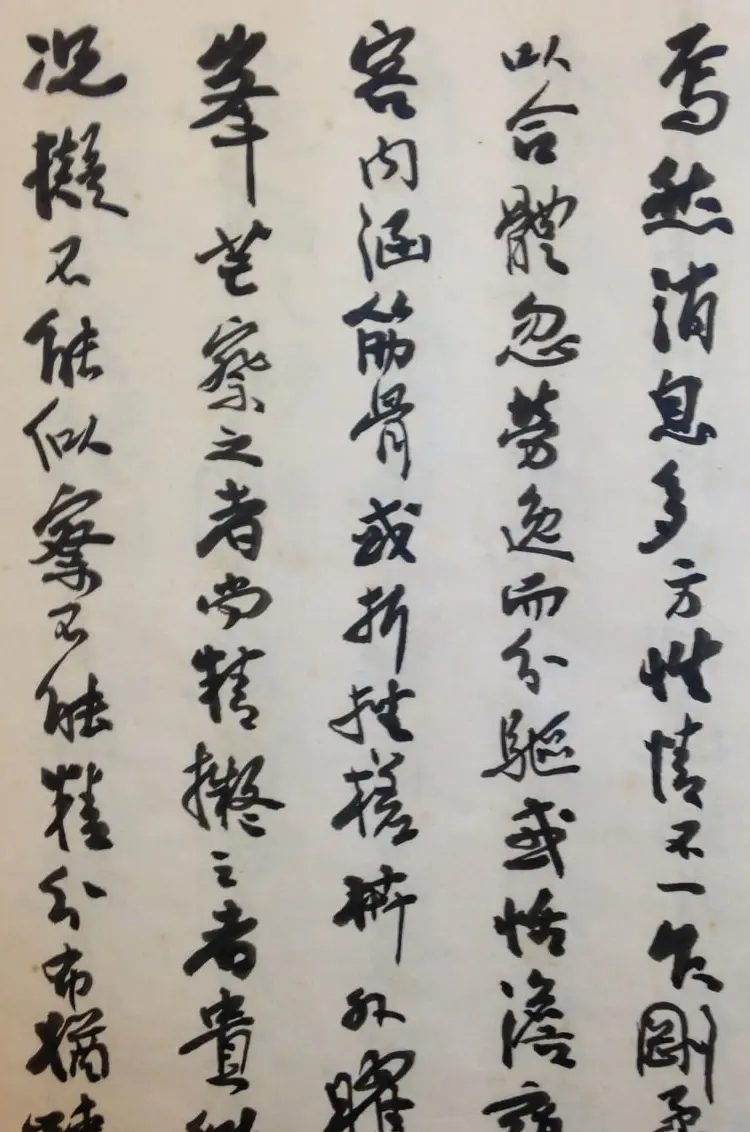 焉然消息多方性情不一乍剛柔
以合體忽勞逸而分驅或恬澹雍
容内涵筋骨或折挫槎枿外曜
峯芒察之者尚精擬之者貴似
況擬不能似察不能精分布猶疎